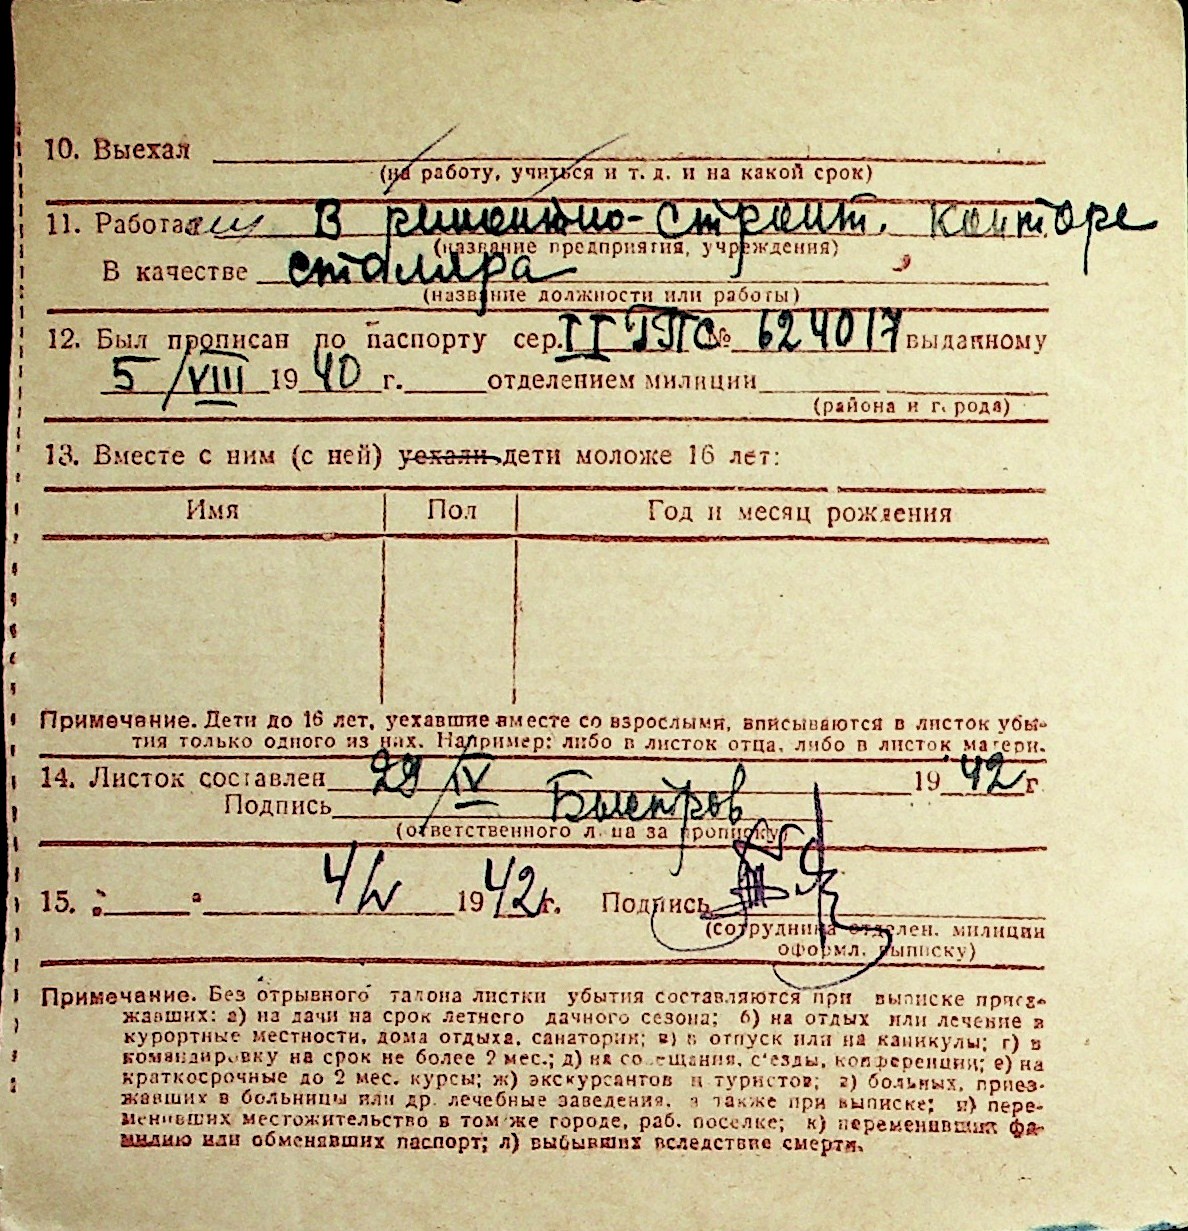 10. Выехал
(на работу, учиться и т. д. и на какой срок)
11. Работал В ремонтно-строит. конторе
(название предприятия, учреждения)
В качестве столяра
(название должности или работы)
12. Был прописан по паспорту сер. II ТПС № 624017 выданному
5/VIII 1940 г. отделением милиции
(района и города)
13. Вместе с ним (с ней) уехали дети моложе 16 лет:
Имя Пол Год и месяц рождения
Примечание. Дети до 16 лет, уехавшие вместе со взрослыми, вписываются в листок убы-
тия только одного из них. Например: либо в листок отца, либо в листок матери.
14. Листок составлен 29/IV 1942 г
Подпись Быстров
(ответственного лица за прописку)
15. " " 4/V 1942 г. Подпись
(сотрудника отделен. милиции
оформл. выписку)
Примечание. Без отрывного талона листки убытия составляются при выписке приез-
жавших: а) на дачи на срок летнего дачного сезона; б) на отдых или лечение в
курортные местности, дома отдыха, санатории; в) в отпуск или на каникулы; г) в
командировку на срок не более 2 мес.; д) на совещания, с'езды, конференции; е) на
краткосрочные до 2 мес. курсы; ж) экскурсантов и туристов; з) больных, приез-
жавших в больницы или др. лечебные заведения, а также при выписке; и) пере-
менивших местожительство в том же городе, раб. поселке; к) переменивших фа-
милию или обменявших паспорт; л) выбывших вследствие смерти.